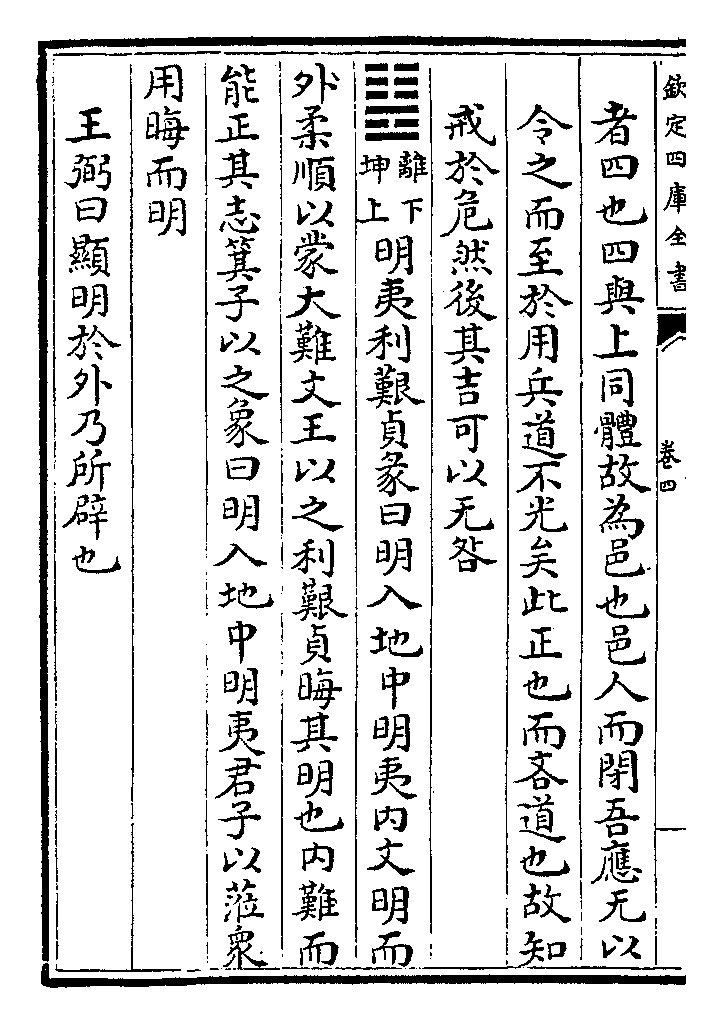 欽定四庫全書
卷四
者四也四與上同體故為邑也邑人而閉吾應无以
令之而至於用兵道不光矣此正也而吝道也故知
戒於危然後其吉可以无咎
䷣離下坤上明夷利艱貞彖曰明入地中明夷内文明而
外柔順以蒙大難文王以之利艱貞晦其明也内難而
能正其志箕子以之象曰明入地中明夷君子以蒞衆
用晦而明
王弼曰顯明於外乃所辟也